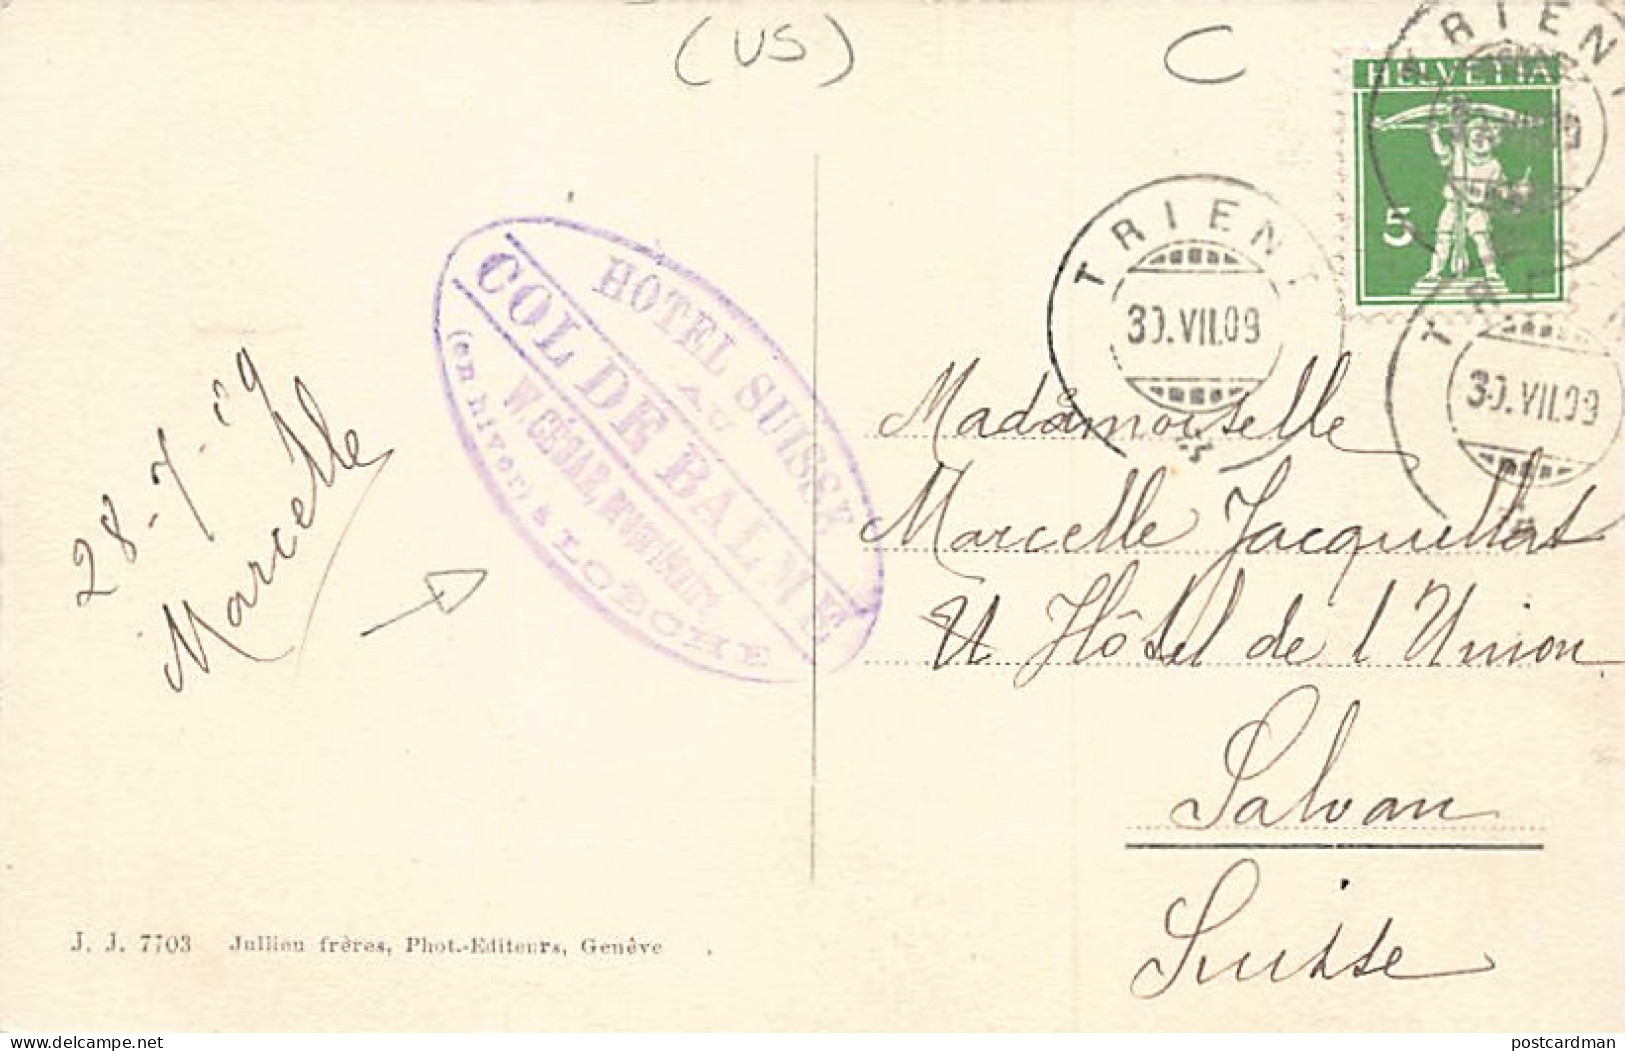 (US)
C
TRIENT
HELVETIA
5
TRIENT
30.VII.09
TRIENT
30.VII.09
HOTEL SUISSE
AU
COL DE BALME
W. CÉSAR,
(en hiver) à LOECHE
28-7-09
Marcelle
Mademoiselle
Marcelle Jacquellot
Hôtel de l'Union
Salvan
Suisse
J. J. 7703 Jullien frères, Phot.-Editeurs, Genève
delcampe.net
postcardman